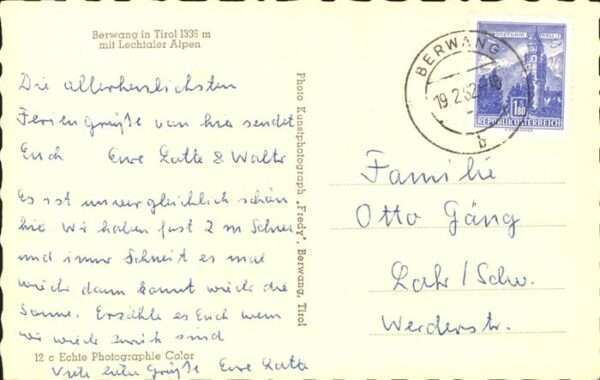 Berwang in Tirol 1336 m
mit Lechtaler Alpen
Die allerherzlichsten
Feriengrüße von hier sendet
Euch Eure Lotte & Walter
Es ist unvergleichlich schön
hie Wir haben fast 2 m Schnee
und immer schneit es mal
wieder dann kommt wieder die
Sonne. Erzähle es Euch wenn
wir wieder zurück sind
Viele liebe Grüße Eure Lotte
12 c Echte Photographie Color
Photo Kunstphotograph „Fredy", Berwang, Tirol
BERWANG
19.2.62
b
1.80
REPUBLIK ÖSTERREICH
Familie
Otto Gäng
Lahr/Schw.
Werderstr.